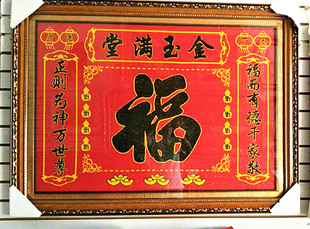 金玉满堂
福而有德千家敬
福
正则为神万世尊